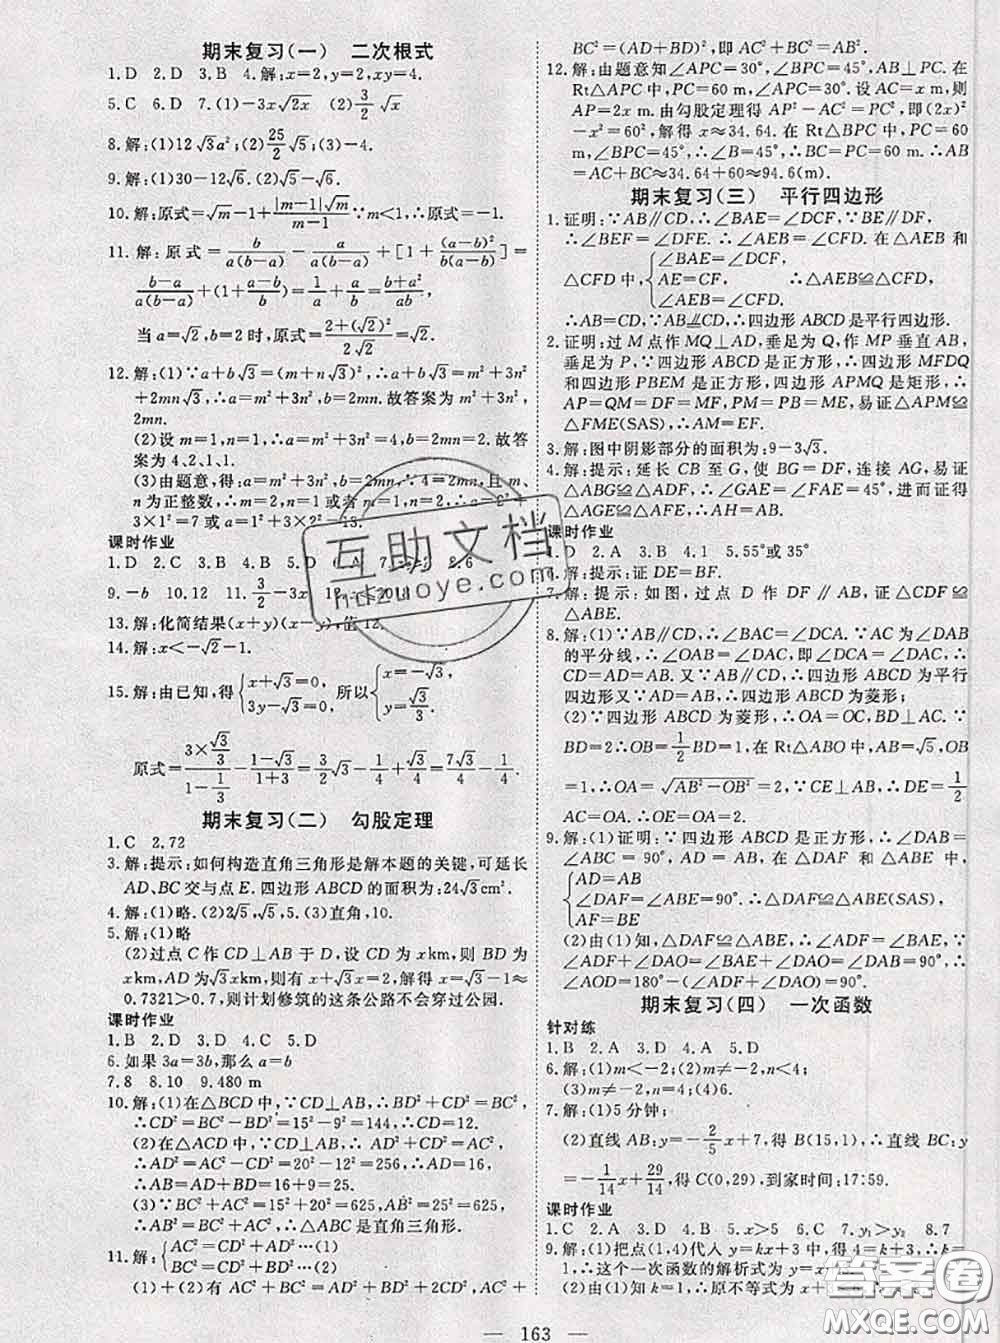 期末复习(一)　二次根式
1.D　2.D　3.B　4.解:x=2,y=2,xy=4.
5.C　6.D　7.(1)-3x√(2x)　(2)3/2 √x
8.解:(1)12√3a²;(2)25/2 √5;(3)-4.
9.解:(1)30-12√6.
10.解:原式=√m-1+|m-1|√m/(m-1)∵m<1,∴原式=-1.
11.解:原式=b/a(b-a)-a/a(b-a)+[1+(a-b)²/b(a-b)]=
b-a/a(b-a)+(1+(a-b)/b)=1/a+a/b=(b+a²)/ab
当a=√2,b=2时,原式=(2+(√2)²)/2√2=√2.
12.解:(1)∵a+b√3=(m+n√3)²,∴a+b√3=m²+3n²
+2mn√3,∴a=m²+3n²,b=2mn.故答案为m²+3n²,
2mn.
(2)设m=1,n=1,∴a=m²+3n²=4,b=2mn=2.故答
案为4、2、1、1.
(3)由题意,得:a=m²+3n²,b=2mn∵4=2mn,且m、
n为正整数,∴m=2,n=1或者m=1,n=2,∴a=2²+
3×1²=7或a=1²+3×2²=13.
课时作业
1.D　2.C　3.B　4.D　5.B　6.A　7.　8.6
9.-b　10.12　11.3/2-3x　12.
13.化简结果(x+y)(x-y),值12.
14.解:x<-√2-1.
15.解:由已知,得{x+√3=0, 3y-√3=0,所以{x=-√3, y=√3/3.
原式=(3×√3/3)/(1-1/3)-(1-√3)/(1+3)=3/2 √3-1/4+√3/4=7√3/4-1/4
期末复习(二)　勾股定理
1.C　2.72
3.解:提示:如何构造直角三角形是解本题的关键,可延长
AD、BC交与点E.四边形ABCD的面积为:24√3cm².
4.解:(1)略.(2)2√5,√5,5;(3)直角,10.
5.解:(1)略
(2)过点C作CD⊥AB于D,设CD为xkm,则BD为
xkm,AD为√3xkm,则有x+√3x=2,解得x=√3-1≈
0.7321>0.7,则计划修筑的这条公路不会穿过公园.
课时作业
1.B　2.D　3.D　4.C　5.D
6.如果3a=3b,那么a=b
7.8　8.10　9.480 m
10.解:(1)在△BCD中,∵CD⊥AB,∴BD²+CD²=BC²,
∴CD²=BC²-BD²=15²-9²=144,∴CD=12.
(2)在△ACD中,∵CD⊥AB,∴AD²+CD²=AC²,
∴AD²=AC²-CD²=20²-12²=256,∴AD=16,
∴AB=AD+BD=16+9=25.
(3)∵BC²+AC²=15²+20²=625,AB²=25²=625,
∴AB²=BC²+AC²,∴△ABC是直角三角形.
11.解:{AC²=CD²+AD²…(1) BC²=CD²+BD²…(2)
(1)+(2)有AC²+BC²=2CD²+AD²+BD²,AC²+
BC²=(AD+BD)²,即AC²+BC²=AB².
12.解:由题意知∠APC=30°,∠BPC=45°,AB⊥PC.在
Rt△APC中,PC=60 m,∠APC=30°,设AC=x m,则
AP=2x m.由勾股定理得AP²-AC²=PC²,即(2x)²
-x²=60²,解得x≈34.64.在Rt△BPC中,PC=60
m,∠BPC=45°,∴∠B=45°,∴BC=PC=60 m,∴AB
=AC+BC≈34.64+60=94.64≈95(m).
期末复习(三)　平行四边形
1.证明:∵AB∥CD,∴∠BAE=∠DCF,∵BE∥DF,
∴∠BEF=∠DFE.∴∠AEB=∠CFD.在△AEB和
△CFD中,{∠BAE=∠DCF, AE=CF, ∠AEB=∠CFD.　∴△AEB≌△CFD,
∴AB=CD,∵AB∥CD,∴四边形ABCD是平行四边形.
2.证明:过M点作MQ⊥AD,垂足为Q,作MP垂直AB,
垂足为P,∵四边形ABCD是正方形,∴四边形MFDQ
和四边形PBEM是正方形,四边形APMQ是矩形,
∴AP=QM=DF=MF,PM=PB=ME,∴△APM≌
△FME(SAS),∴AM=EF.
3.解:图中阴影部分的面积为:9-3√3.
4.解:提示:延长CB至G,使BG=DF,连接AG,易证
△ABG≌△ADF,∴∠GAE=∠FAE=45°,进而证得
△AGE≌△AFE,∴AH=AB.
课时作业
1.D　2.A　3.B　4.1　5.55°或35°
6.解:提示:证DE=BF.
7.解:提示:如图,过点D作DF∥AB,证△CDF≌
△ABE.
8.解:(1)∵AB∥CD,∴∠BAC=∠DCA.∵AC为∠DAB
的平分线,∴∠OAB=∠DAC,即∠DCA=∠DAC,∴
CD=AD=AB.又∵AB∥CD,∴四边形ABCD为平行
四边形又∵AD=AB,∴四边形ABCD为菱形;
(2)∵四边形ABCD为菱形,∴OA=OC,BD⊥AC,∵
BD=2∴OB=1/2BD=1,在Rt△ABO中,AB=√5,OB
=1,∴OA=√(AB²-OB²)=2.∵CE⊥AB,∴OE=1/2
AC,∴OE=OA=OC=2.
9.解:(1)证明:∵四边形ABCD是正方形,∴∠DAB=
∠ABC=90°,AD=AB,在△DAF和△ABE中,
{AD=AB ∠DAF=∠ABE=90°.∴△DAF≌△ABE(SAS), AF=BE
(2)由(1)知,△DAF≌△ABE,∴∠ADF=∠BAE,∵
∠ADF+∠DAO=∠BAE+∠DAO=∠DAB=90°,∴
∠AOD=180°-(∠ADF+∠DAO)=90°.
期末复习(四)　一次函数
针对练
1.B　2.A　3.D　4.A　5.D
6.解:(1)m<-2;(2)m≠-2,n<4;
(3)m≠-2,n=4;(4)6.
7.解:(1)5分钟;
(2)直线AB:y=-2/5x+7,得B(15,1),∴直线BC:y
=-1/14x+29/14,得C(0,29),∴到家时间:17:59.
课时作业
1.C　2.A　3.D　4.B　5.x>5　6.C　7.y₁>y₂　8.7
9.解:(1)把点(1,4)代入y=kx+3中,得4=k+3,∴k=
1,∴这个一次函数的解析式为:y=x+3.
(2)由(1)知k=1,∴原不等式为
163
互助文档
hdzuoye.com
答案圈
MXQE.COM